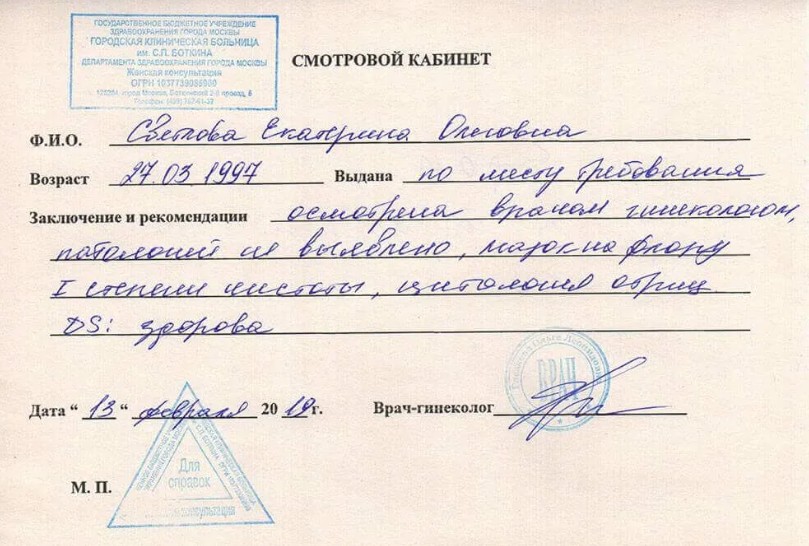 ГОСУДАРСТВЕННОЕ БЮДЖЕТНОЕ УЧРЕЖДЕНИЕ
ЗДРАВООХРАНЕНИЯ ГОРОДА МОСКВЫ
ГОРОДСКАЯ КЛИНИЧЕСКАЯ БОЛЬНИЦА
им. С.П. БОТКИНА
ДЕПАРТАМЕНТА ЗДРАВООХРАНЕНИЯ ГОРОДА МОСКВЫ
Женская консультация
ОГРН
город Москва, Боткинский 2-й проезд, 5
Телефон:
СМОТРОВОЙ КАБИНЕТ
Ф.И.О. Светлова Екатерина Олеговна
Возраст 27.03.1997 Выдана по месту требования
Заключение и рекомендации осмотрена врачом гинекологом,
патологий не выявлено, мазок на флору
I степени чистоты, цитология отриц.
DS: здорова
Дата “ 13 “ февраля 20 19 г. Врач-гинеколог
ВРАЧ
М. П.
Для
справок
консультация